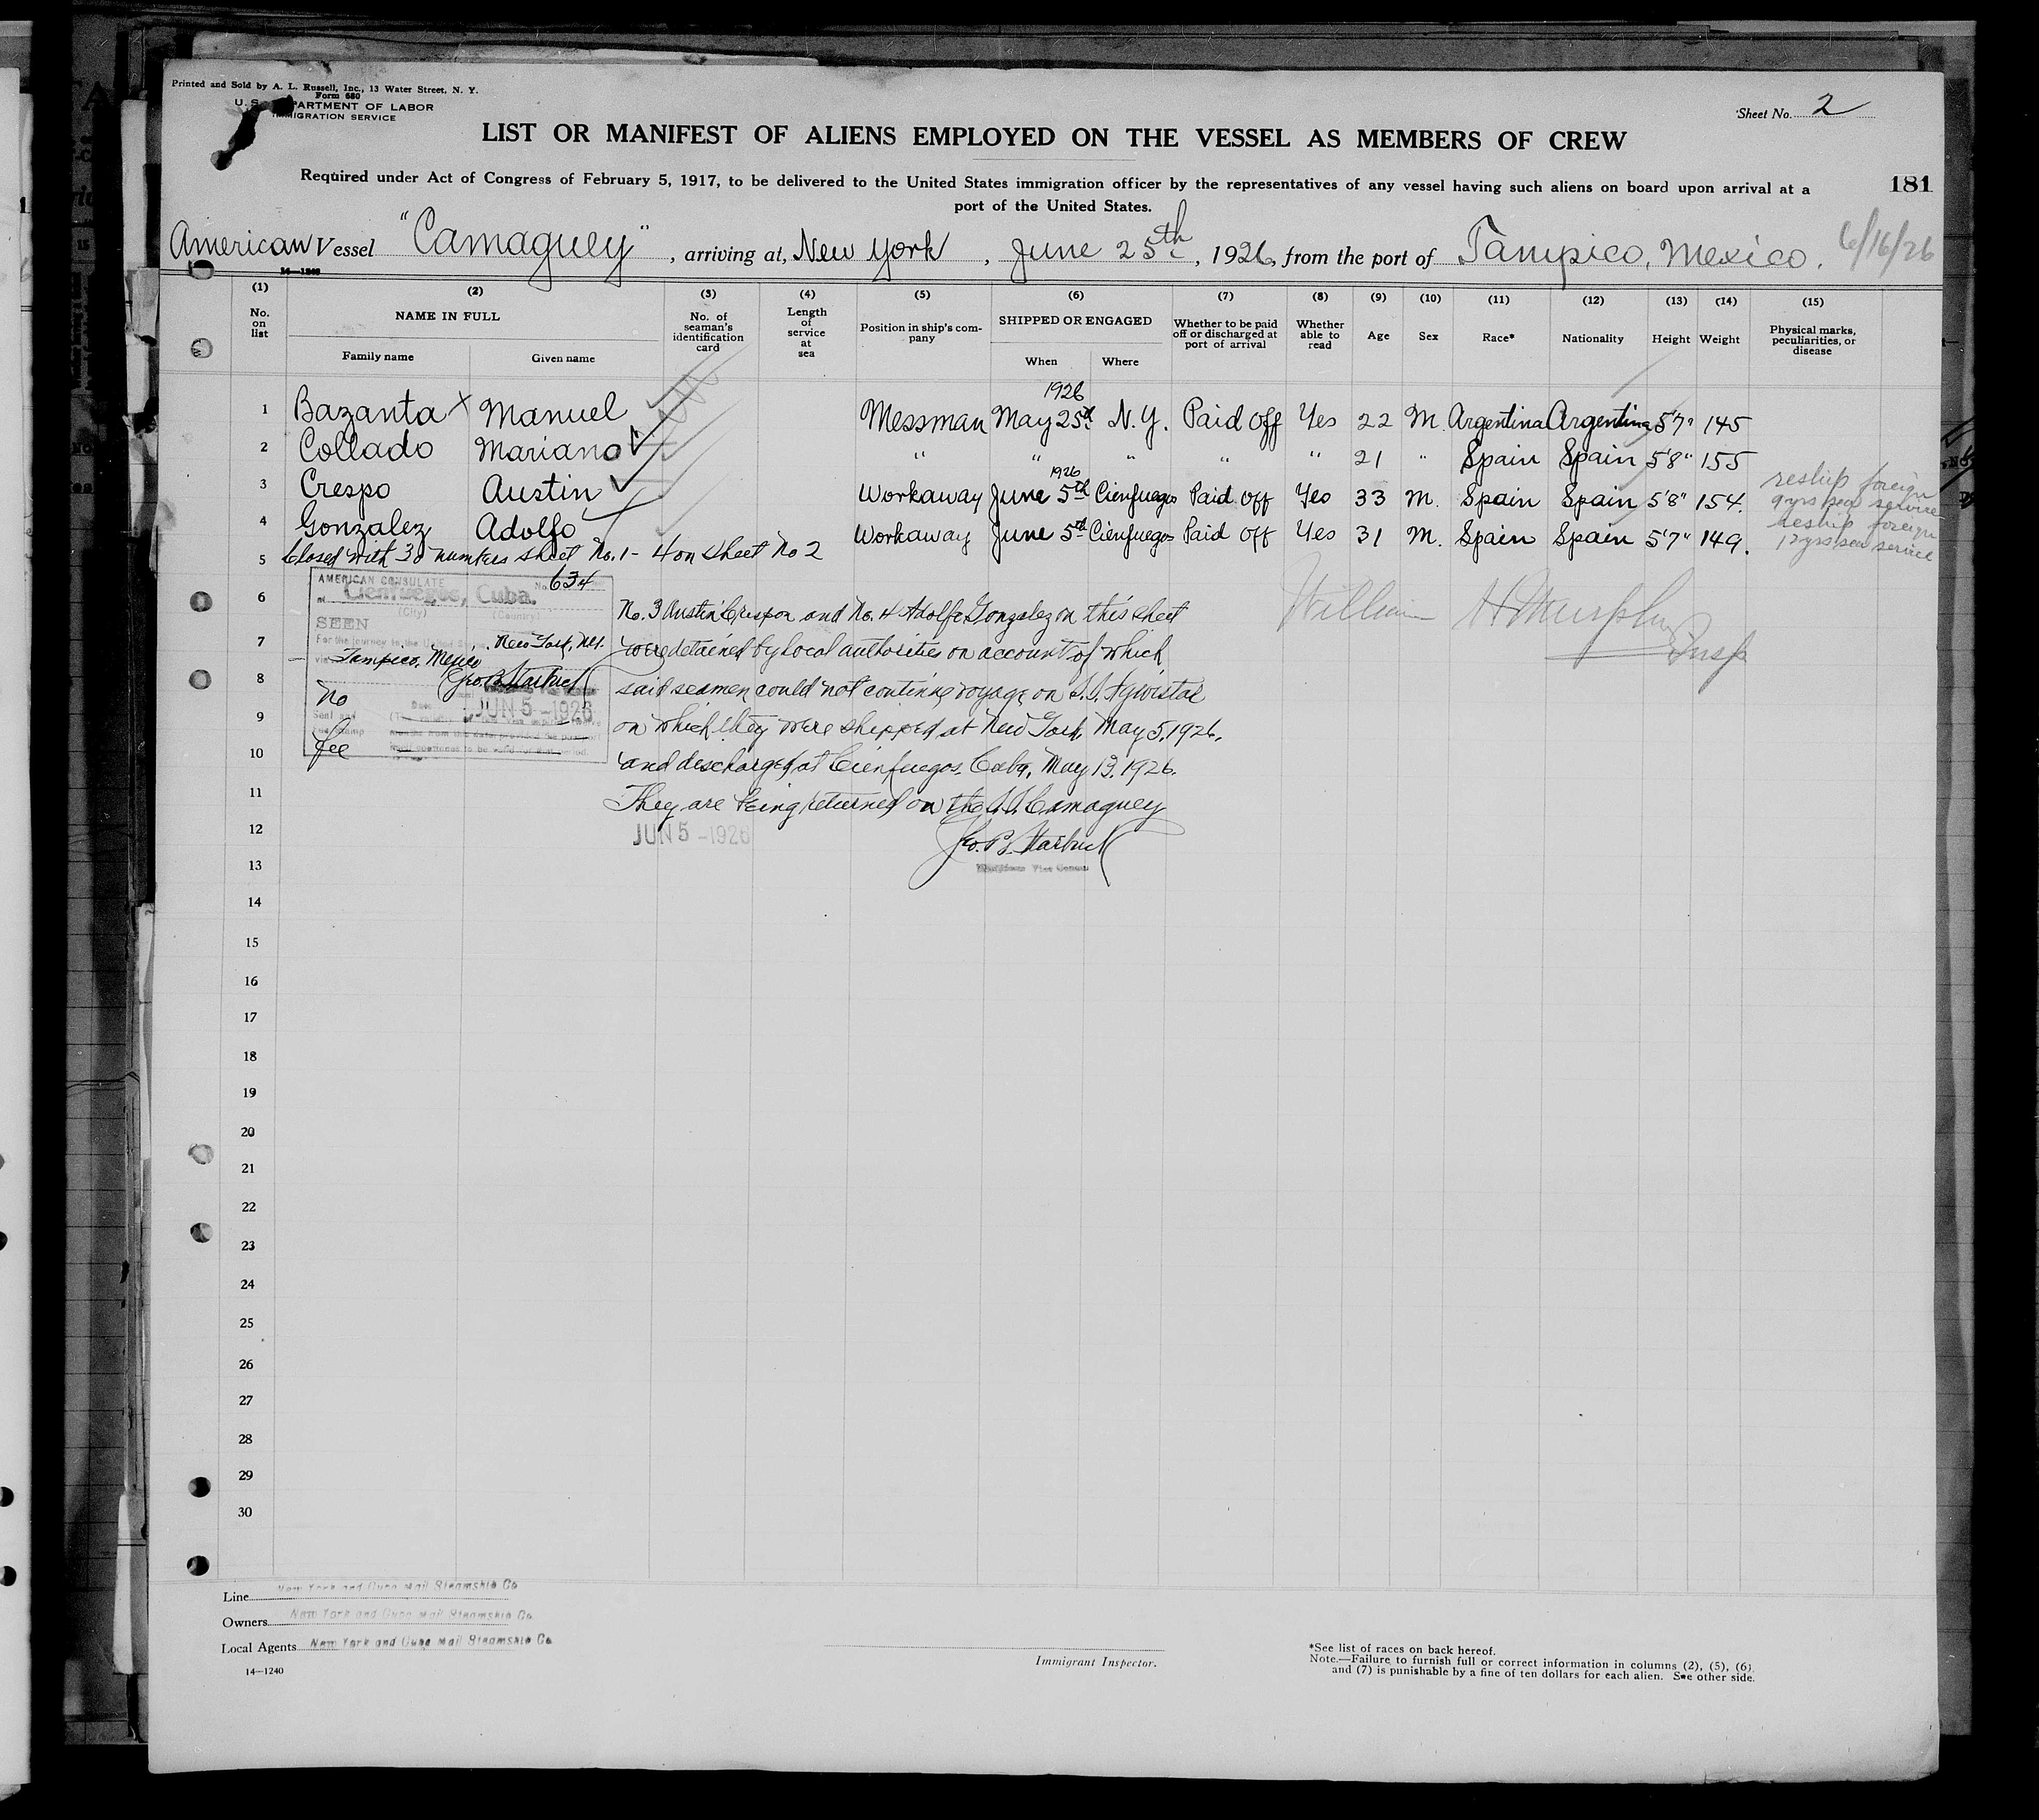 Printed and Sold by A. L. Russell, Inc., 13 Water Street, N. Y.
Form 680
U. S. DEPARTMENT OF LABOR
IMMIGRATION SERVICE
Sheet No. 2
LIST OR MANIFEST OF ALIENS EMPLOYED ON THE VESSEL AS MEMBERS OF CREW
Required under Act of Congress of February 5, 1917, to be delivered to the United States immigration officer by the representatives of any vessel having such aliens on board upon arrival at a
port of the United States.
181
American Vessel "Camaguey", arriving at, New York, June 25th, 1926, from the port of Tampico, Mexico. 6/16/26
14—1240
(1) (2) (3) (4) (5) (6) (7) (8) (9) (10) (11) (12) (13) (14) (15)
No. on list
NAME IN FULL
Family name Given name
No. of seaman's identification card
Length of service at sea
Position in ship's company
SHIPPED OR ENGAGED
When Where
Whether to be paid off or discharged at port of arrival
Whether able to read
Age Sex Race* Nationality Height Weight
Physical marks, peculiarities, or disease
1926
1 Bazanta x Manuel Messman May 25th N.Y. Paid Off Yes 22 M. Argentina Argentina 5'7" 145
2 Collado Mariano " " " " " 21 " Spain Spain 5'8" 155
1926
3 Crespo Austin Workaway June 5th Cienfuegos Paid Off Yes 33 M. Spain Spain 5'8" 154. reship foreign 9 yrs sea service
4 Gonzalez Adolfo Workaway June 5th Cienfuegos Paid Off Yes 31 M. Spain Spain 5'7" 149. reship foreign 12 yrs sea service
5 Closed with 30 numbers sheet No. 1 - 4 on sheet No 2
AMERICAN CONSULATE
No. 634
at Cienfuegos, Cuba.
(City) (Country)
SEEN
For the journey to the United States
New York, N.Y.
via Tampico, Mexico
Geo. B. Starbuck
No
Fee
JUN 5 - 1926
No. 3 Austin Crespo and No. 4 Adolfo Gonzalez on this sheet
were detained by local authorities on account of which
said seamen could not continue voyage on S.S.
on which they were shipped at New York, May 5, 1926,
and discharged at Cienfuegos, Cuba, May 13, 1926.
They are being returned on the S.S. Camaguey
JUN 5 - 1926
Geo. B. Starbuck
Vice Consul
William H Murphy
Insp
6
7
8
9
10
11
12
13
14
15
16
17
18
19
20
21
22
23
24
25
26
27
28
29
30
Line New York and Cuba Mail Steamship Co
Owners New York and Cuba Mail Steamship Co.
Local Agents New York and Cuba Mail Steamship Co.
14—1240
Immigrant Inspector.
*See list of races on back hereof.
Note.—Failure to furnish full or correct information in columns (2), (5), (6),
and (7) is punishable by a fine of ten dollars for each alien. See other side.